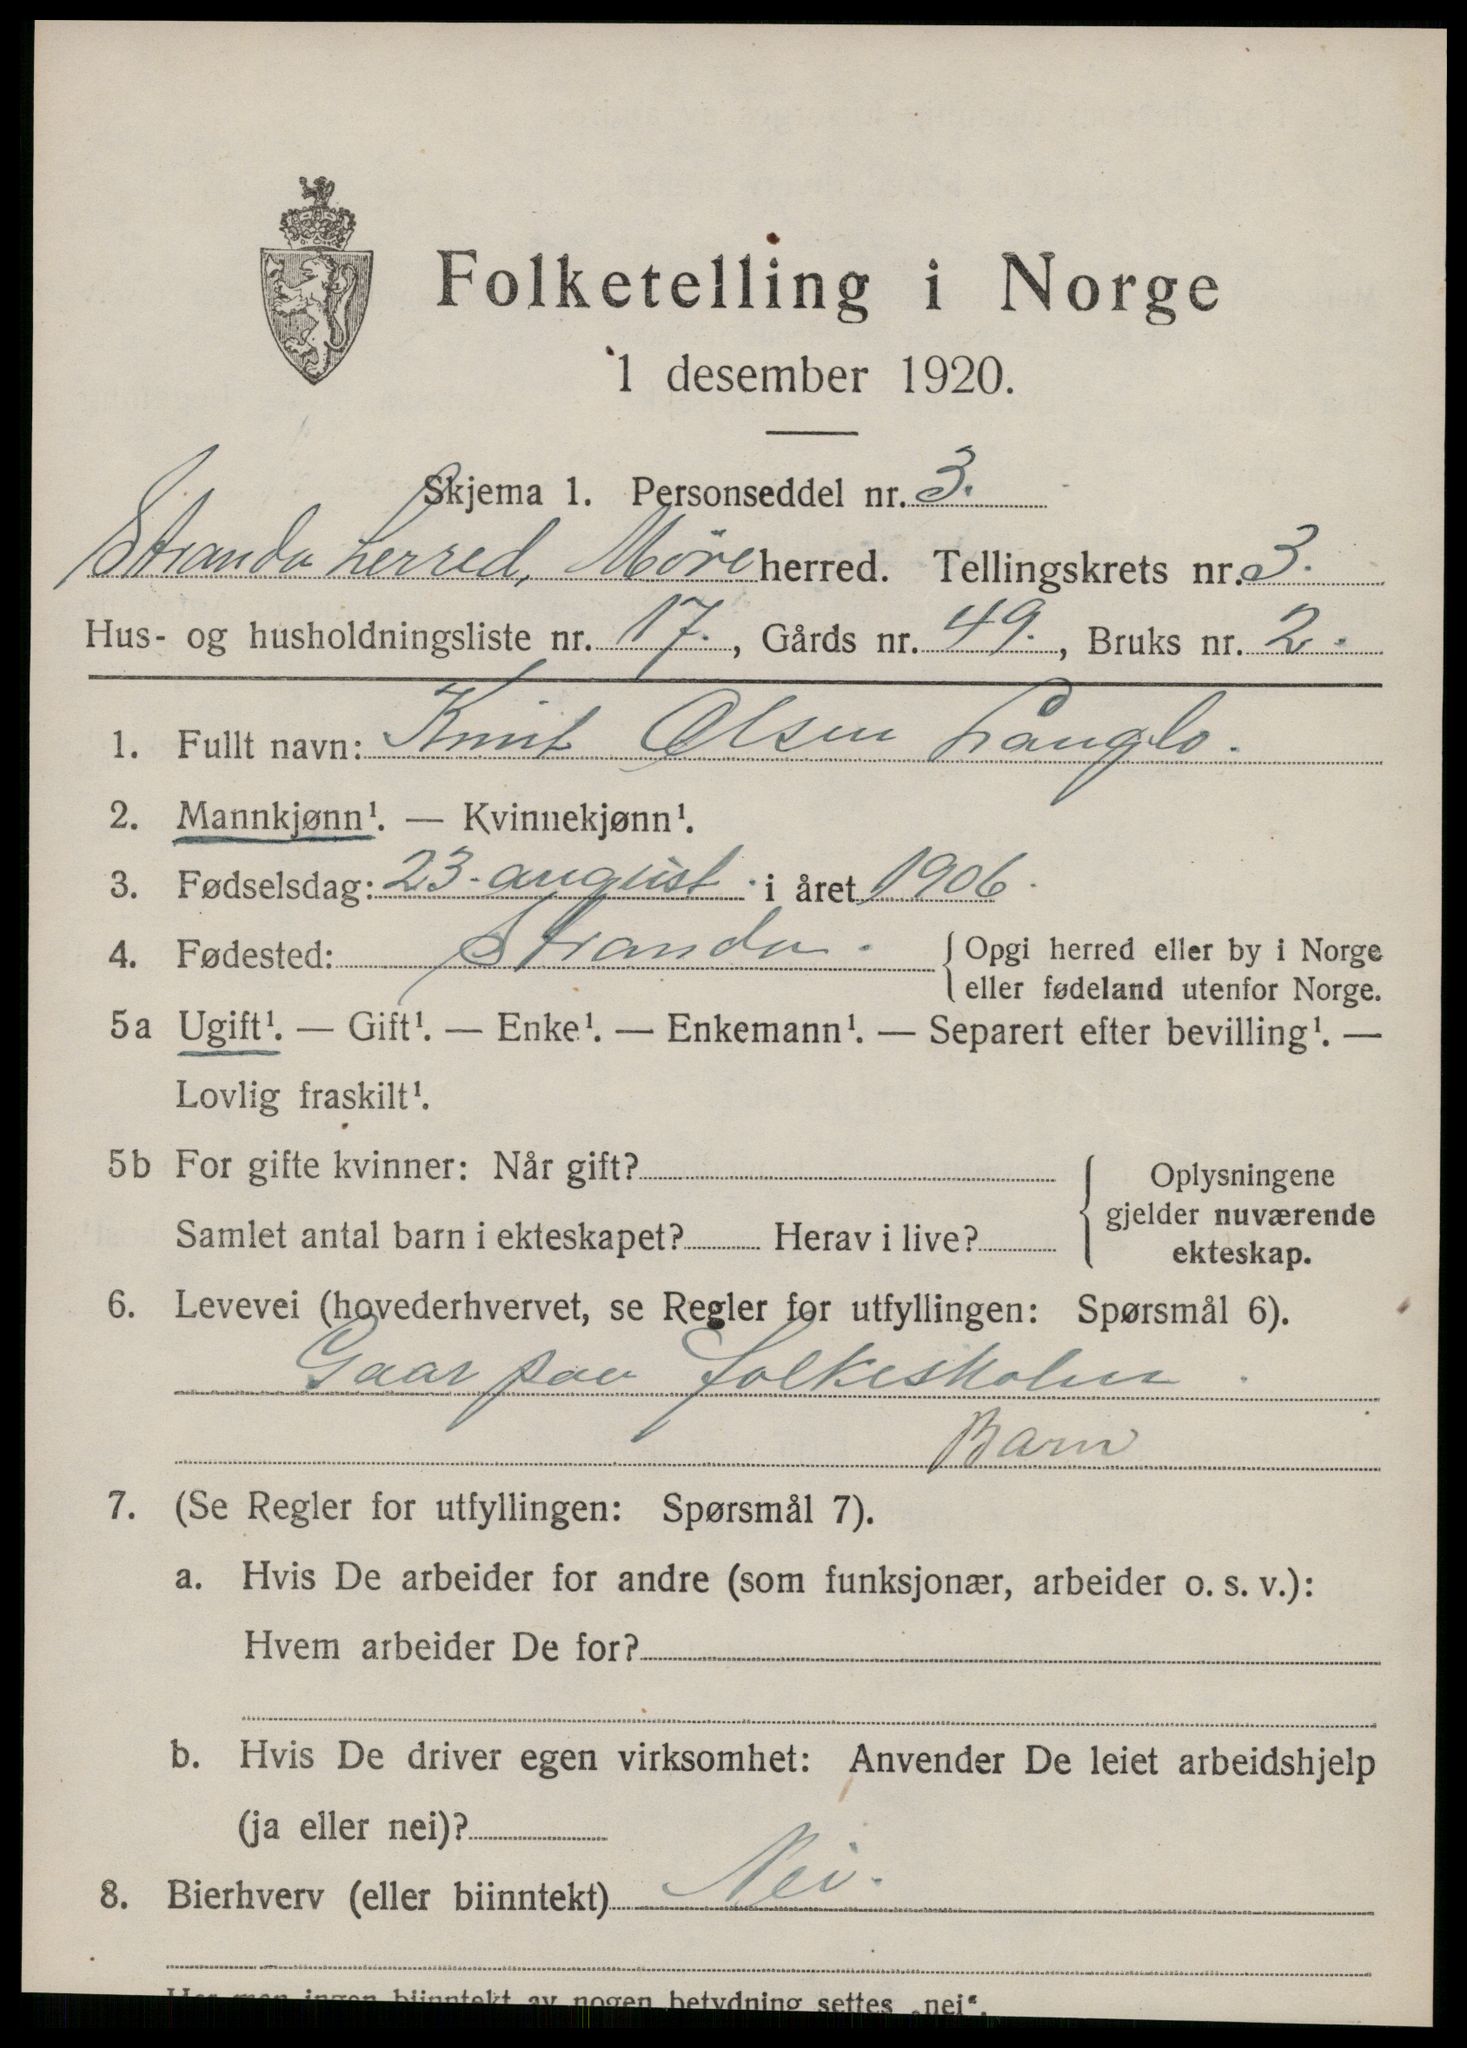 Folketelling i Norge
1 desember 1920.
Skjema 1. Personseddel nr. 3.
Stranda herred, Møre herred. Tellingskrets nr. 3.
Hus- og husholdningsliste nr. 17., Gårds nr. 49., Bruks nr. 2.
1. Fullt navn: Knut Olsen Langlo.
2. Mannkjønn¹. — Kvinnekjønn¹.
3. Fødselsdag: 23. august. i året 1906.
4. Fødested: Stranda. { Opgi herred eller by i Norge
eller fødeland utenfor Norge.
5a Ugift¹. — Gift¹. — Enke¹. — Enkemann¹. — Separert efter bevilling¹. —
Lovlig fraskilt¹.
5b For gifte kvinner: Når gift? Oplysningene
gjelder nuværende
Samlet antal barn i ekteskapet? Herav i live?
ekteskap.
6. Levevei (hovederhvervet, se Regler for utfyllingen: Spørsmål 6).
Gaar paa folkeskolen.
Barn
7. (Se Regler for utfyllingen: Spørsmål 7).
a. Hvis De arbeider for andre (som funksjonær, arbeider o. s. v.):
Hvem arbeider De for?
b. Hvis De driver egen virksomhet: Anvender De leiet arbeidshjelp
(ja eller nei)?
8. Bierhverv (eller biinntekt) Nei.
Har man ingen biinntekt av nogen betydning settes „nei“.